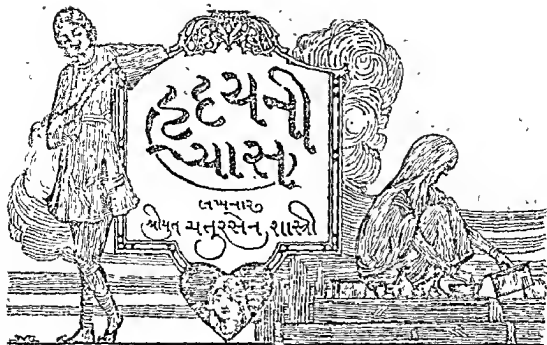 હૃદયની
પ્યાસ
લખનાર
શ્રીયુત ચતુરસેન શાસ્ત્રી